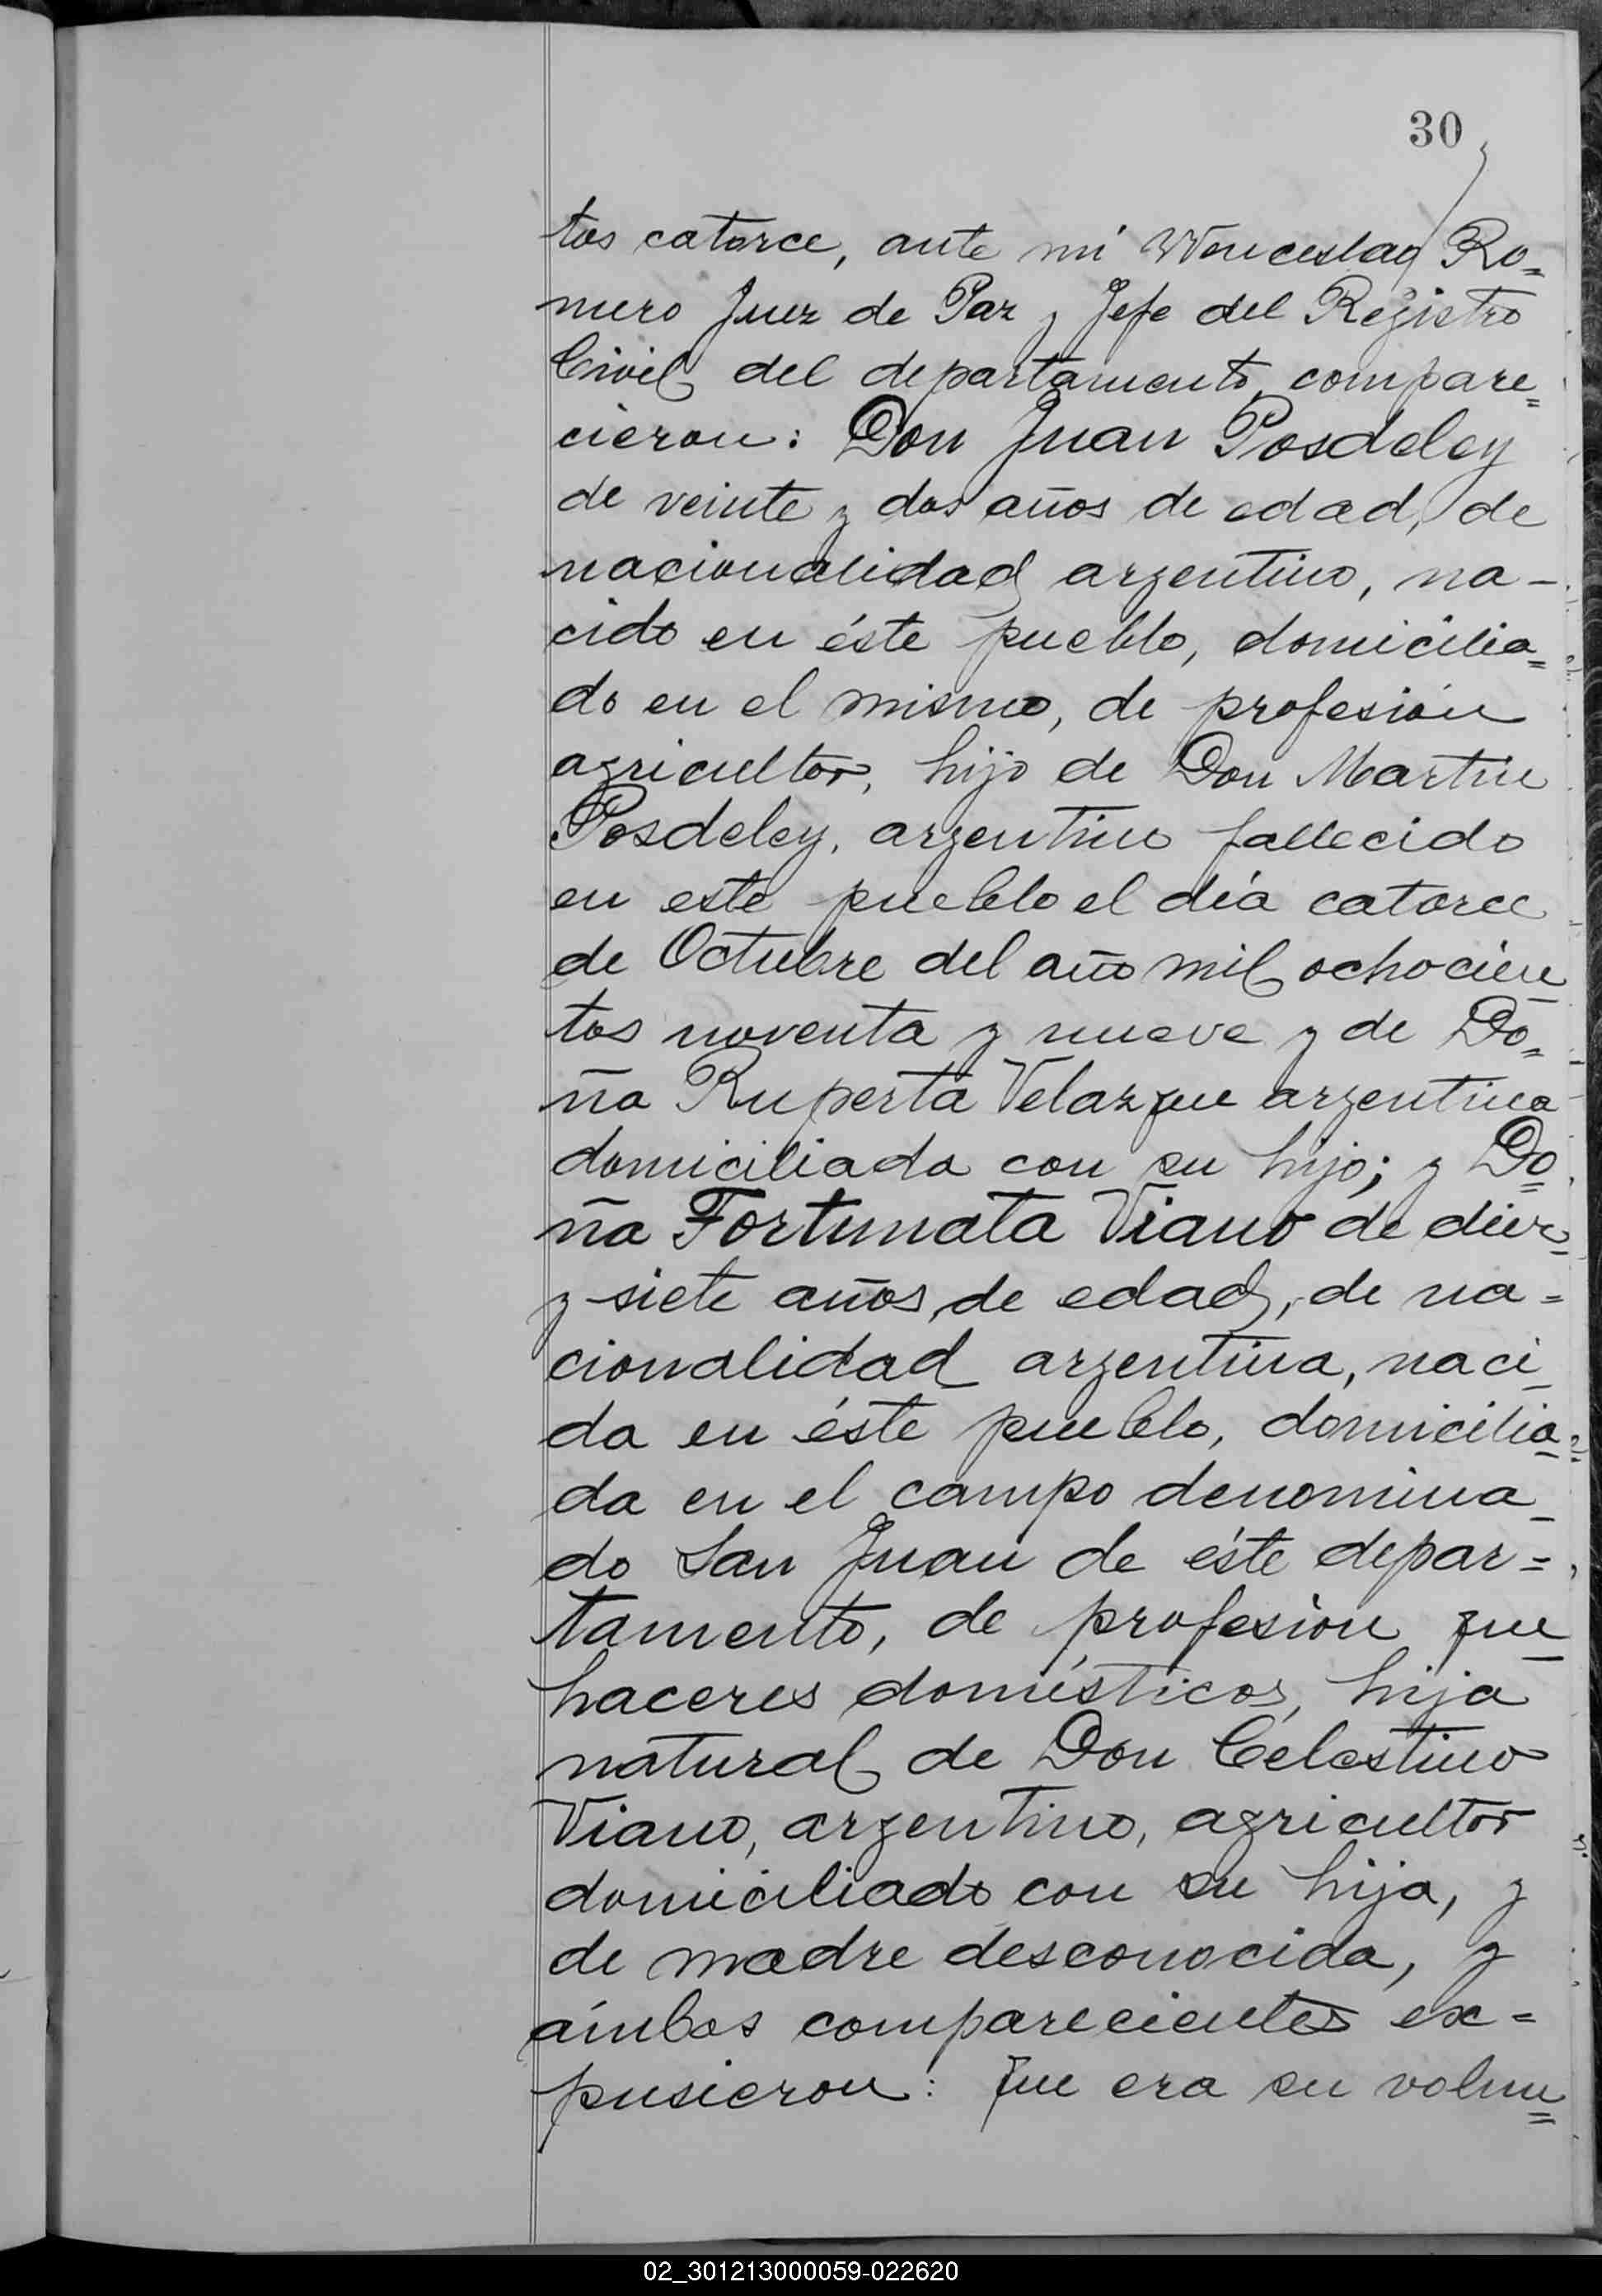 30
tos catorce, ante mi Wenceslao Ro=
mero Juez de Paz y Jefe del Registro
Civil del departamento, compare=
cieron: Don Juan Posdeley
de veinte y dos años de edad, de
nacionalidad argentino, na-
cido en éste pueblo, domicilia=
do en el mismo, de profesión
agricultor, hijo de Don Martin
Posdeley, argentino fallecido
en este pueblo el día catorce
de Octubre del año mil ochocien
tos noventa y nueve y de Do=
ña Ruperta Velazque argentina
domiciliada con su hijo; y Do=
ña Fortunata Viano de diez
y siete años, de edad, de na=
cionalidad argentina, naci
da en éste pueblo, domicilia=
da en el campo denomina
do San Juan de éste depar=
tamento, de profesión que
haceres domésticos, hija
natural de Don Celestino
Viano, argentino, agricultor
domiciliado con su hija, y
de madre desconocida, y
ámbos comparecientes ex=
pusieron: Que era su volun=
02_301213000059-022620